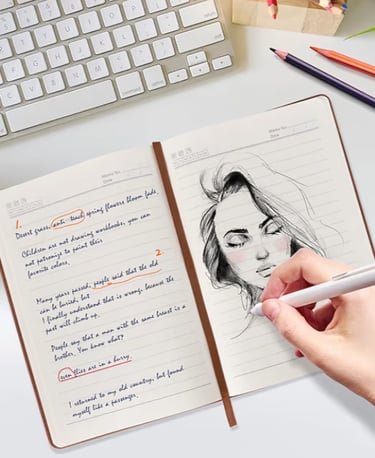 Memo No.
1.
Desert grass, anti-teach spring flowers bloom fade,
Children are not drawing workbooks, you can
not patronize to paint their
favorite colors.
2.
Many years passed, people said that the old
can be buried, but
I finally understand that is wrong, because the
past will climb up.
People say that a man with the same breast is a
brother. You know what?
even flies are in a hurry.
I returned to my old country, but found
myself like a passenger.
Memo No.